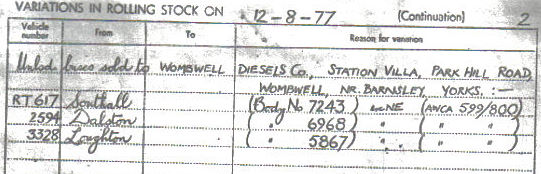 VARIATIONS IN ROLLING STOCK ON 12-8-77 (Continuation) 2
Vehicle number From To Reason for variation
buses sold to WOMBWELL DIESELS Co., STATION VILLA, PARK HILL ROAD
WOMBWELL, NR. BARNSLEY, YORKS. :—
RT617 Southall (Body No 7243) (AWCA 599/800)
2594 Dalston ( " 6968) " ( " " )
3328 Loughton ( " 5867) " ( " " )